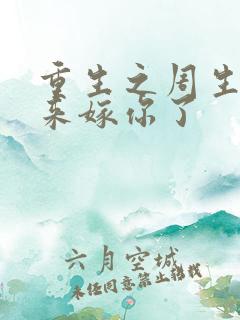 重生之周生
来嫁你了
六月空城
未经同意禁止转载